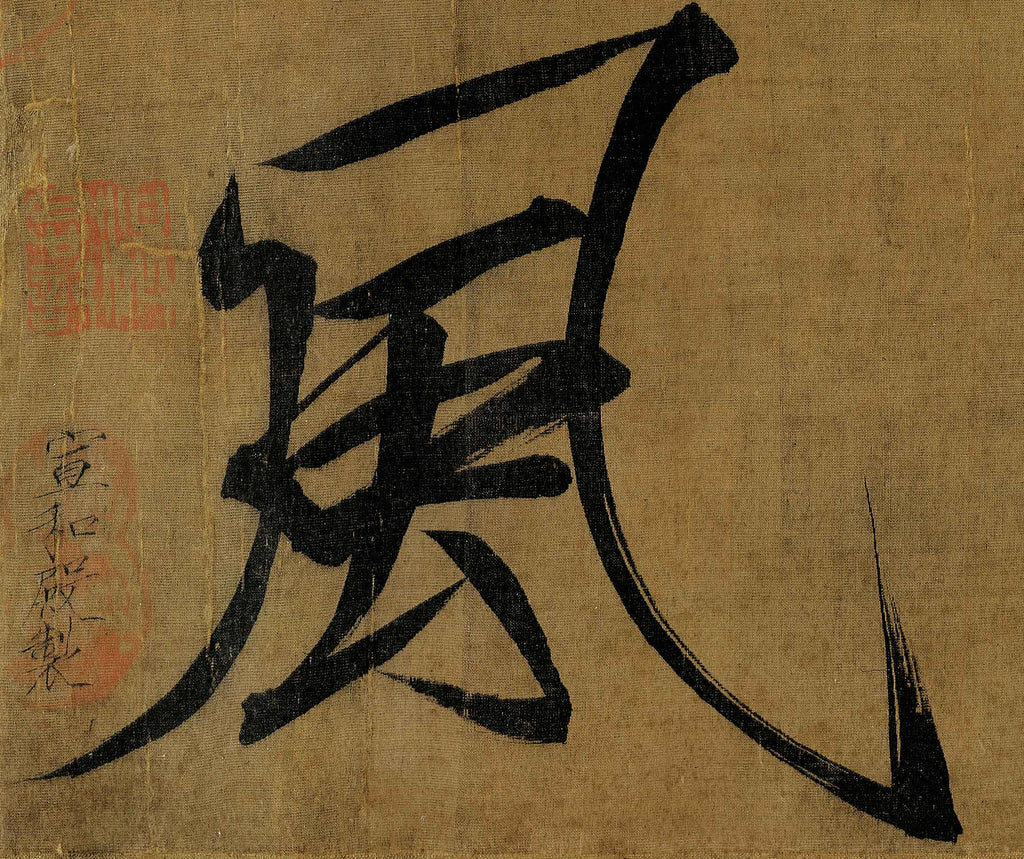 風
宣和殿製